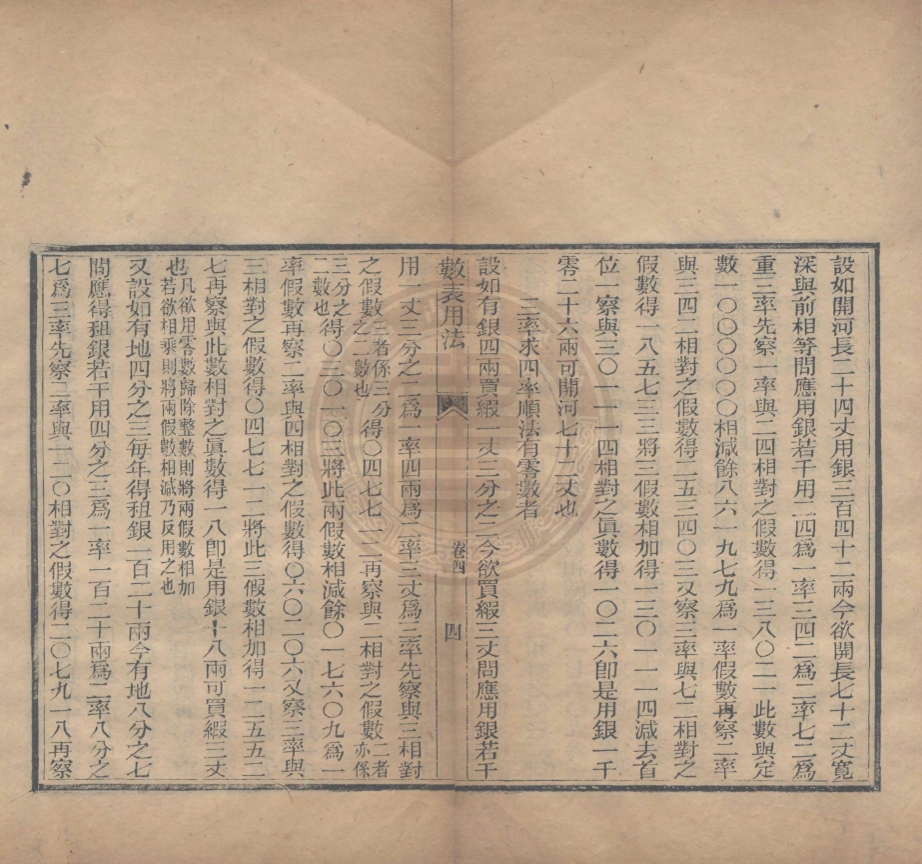 設如開河長二十四丈用銀三百四十二兩今欲開長七十二丈寬
深與前相等問應用銀若干用二四爲一率三四二爲二率七二爲
重三率先察一率與二四相對之假數得一三八〇二一此數與定
數一〇〇〇〇〇〇相減餘八六一九七九爲一率假數再察二率
與三四二相對之假數得二五三四〇三又察三率與七二相對之
假數得一八五七三三將三假數相加得一三〇一一一四減去首
位一察與三〇一一一四相對之眞數得一〇二六卽是用銀一千
零二十六兩可開河七十二丈也
三率求四率順法有零數者
設如有銀四兩買緞一丈三分之二今欲買緞三丈問應用銀若干
數表用法
卷四
四
用一丈三分之二爲一率四兩爲二率三丈爲三率先察與三相對
之假數三者係三分之二數也得〇四七七一二再察與二相對之假數二者亦係
三分之二數也得〇三〇一〇三將此兩假數相減餘〇一七六〇九爲一
率假數再察二率與四相對之假數得〇六〇二〇六又察三率與
三相對之假數得〇四七七一二將此三假數相加得一二五五二
七再察與此數相對之眞數得一八卽是用銀十八兩可買緞三丈
也凡欲用零數歸除整數則將兩假數相加若欲相乘則將兩假數相減乃反用之也
又設如有地四分之三每年得租銀一百二十兩今有地八分之七
問應得租銀若干用四分之三爲一率一百二十兩爲二率八分之
七爲三率先察二率與一二〇相對之假數得二〇七九一八再察